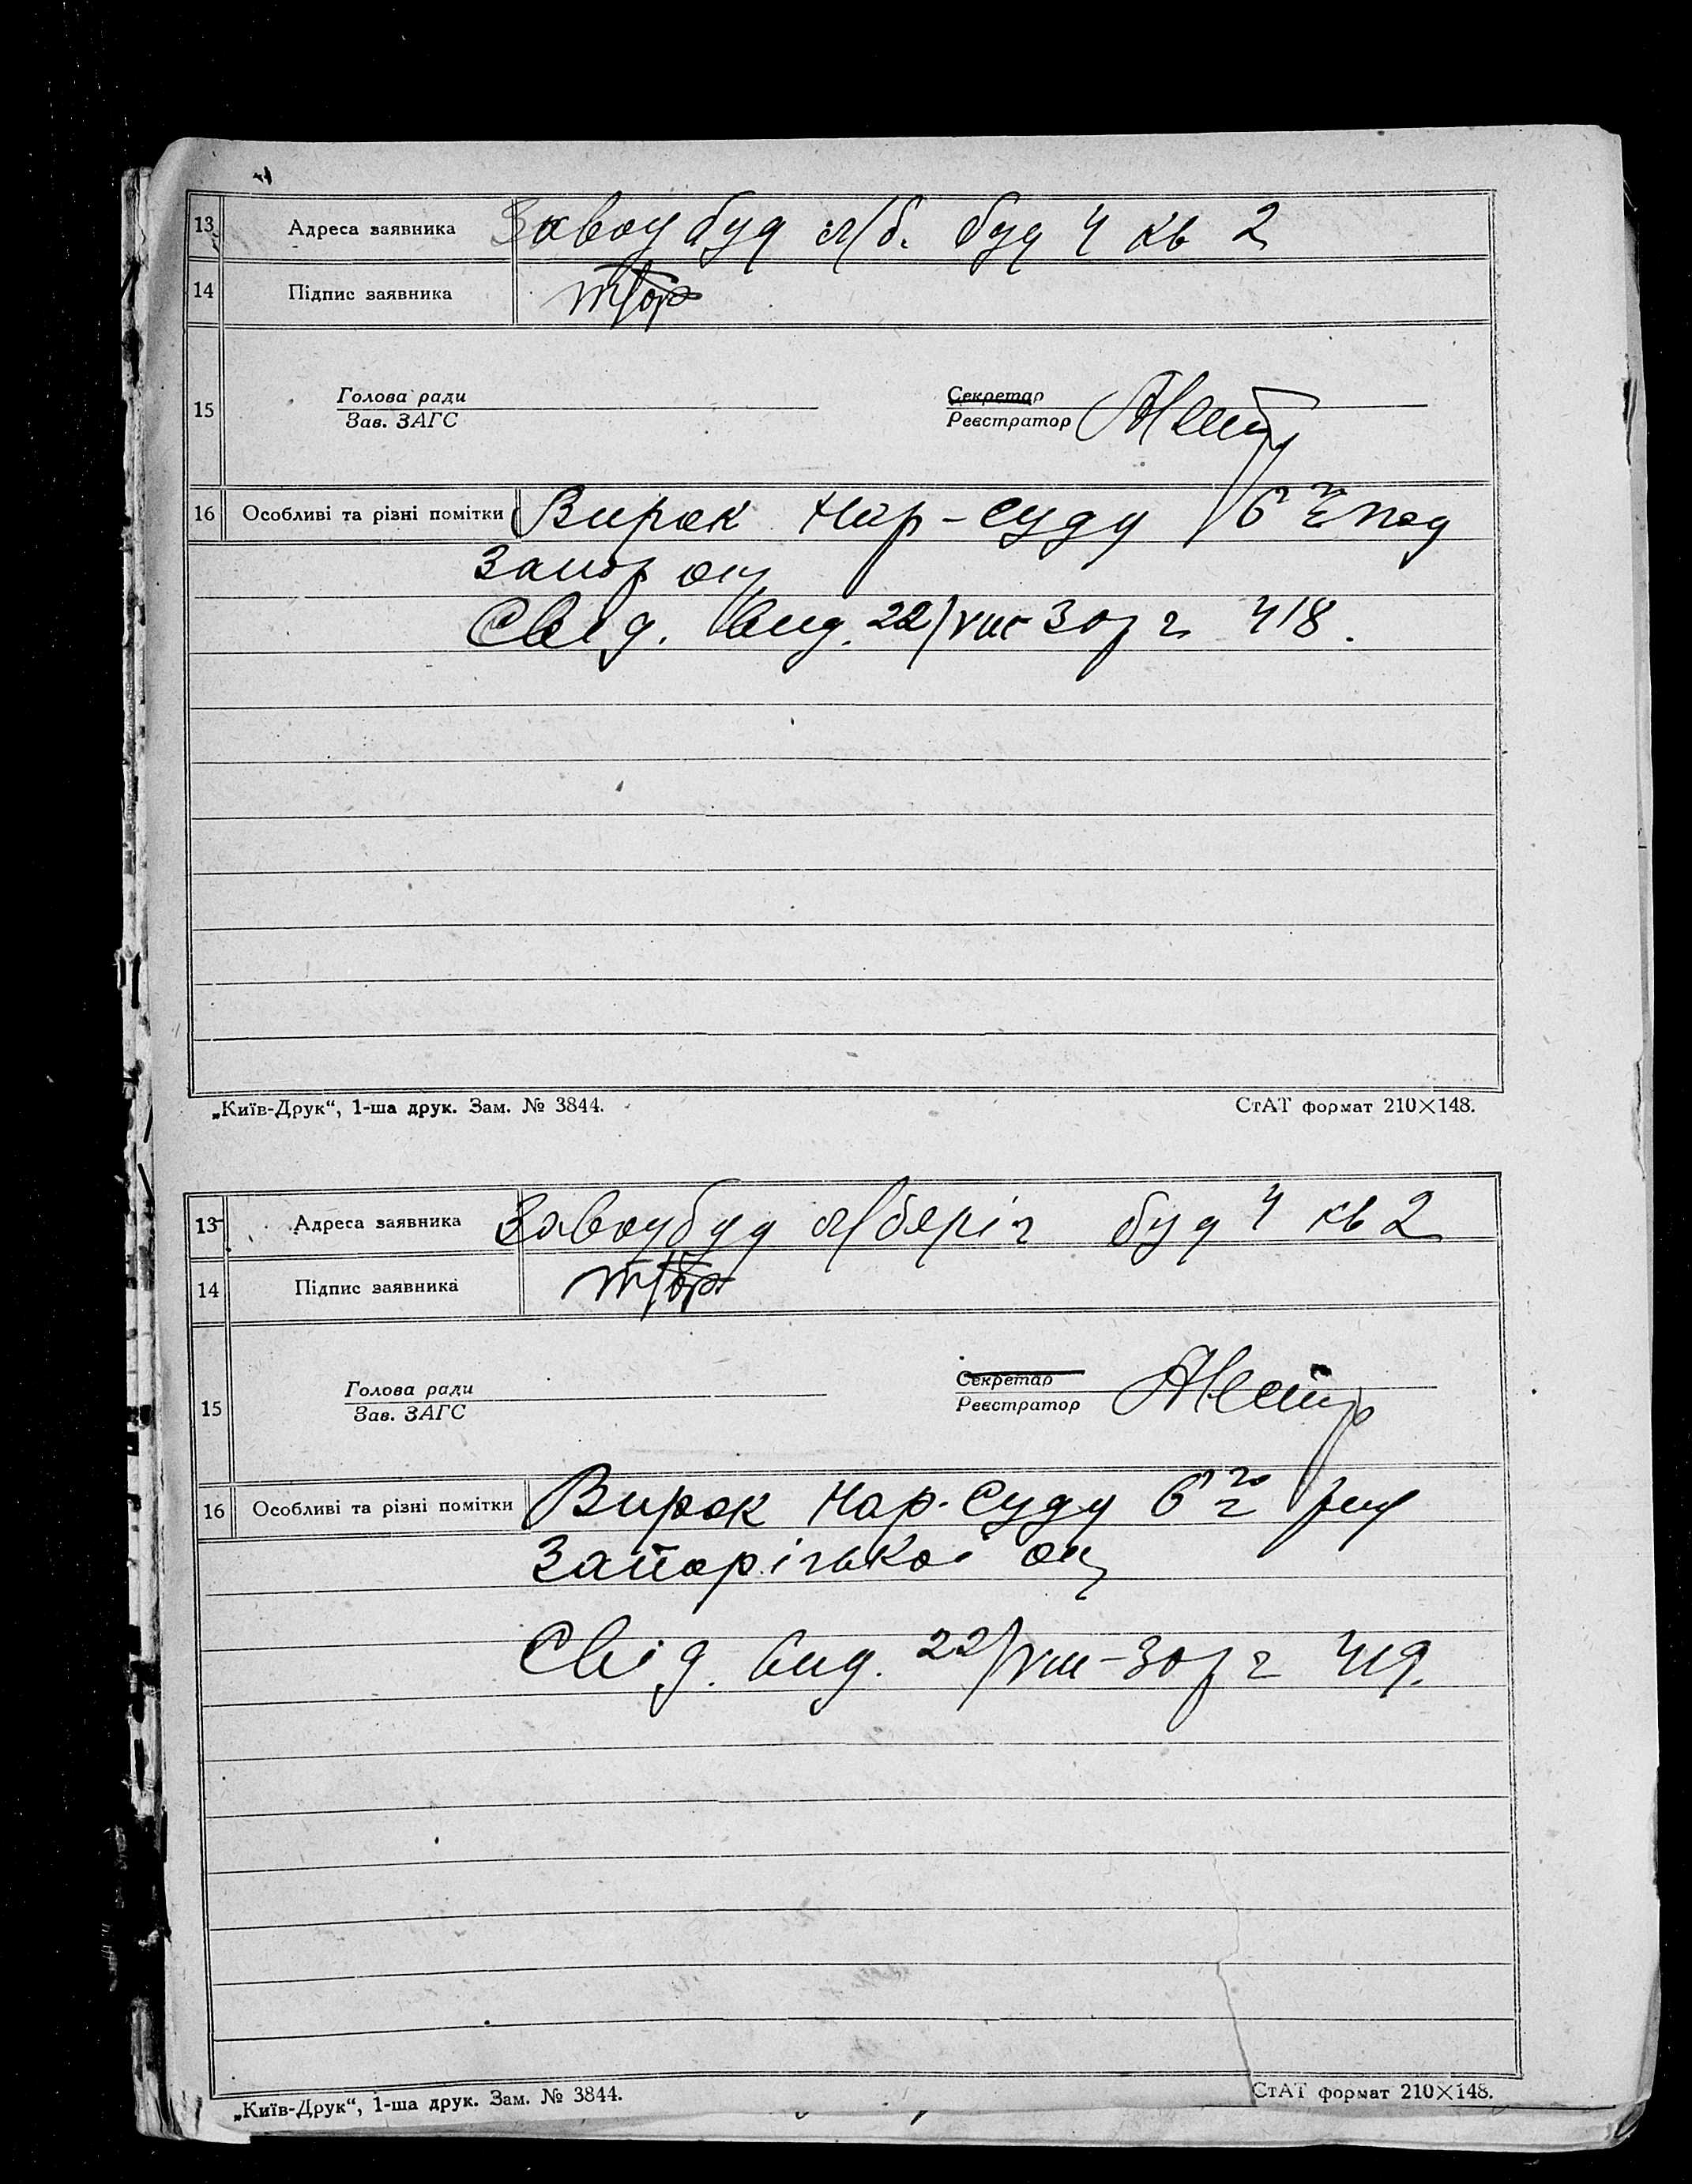 13 Адреса заявника Завоубуд л/б. буд 4 кв 2
14 Підпис заявника
Голова ради Секретар
15
Зав. ЗАГС Реєстратор
16 Особливі та різні помітки Вирок Нар-суду 6
Запор ок
Свід. вид. 22/VIII-30 р г 418.
„Київ-Друк“, 1-ша друк. Зам. № 3844. СтАТ формат 210×148.
13 Адреса заявника буд 4 кв 2
14 Підпис заявника
Голова ради Секретар
15
Зав. ЗАГС Реєстратор
16 Особливі та різні помітки Вирок Нар. Суду 6
Запорізької ок
Свід. вид. 22/VIII-30 р г 419.
„Київ-Друк“, 1-ша друк. Зам. № 3844. СтАТ формат 210×148.